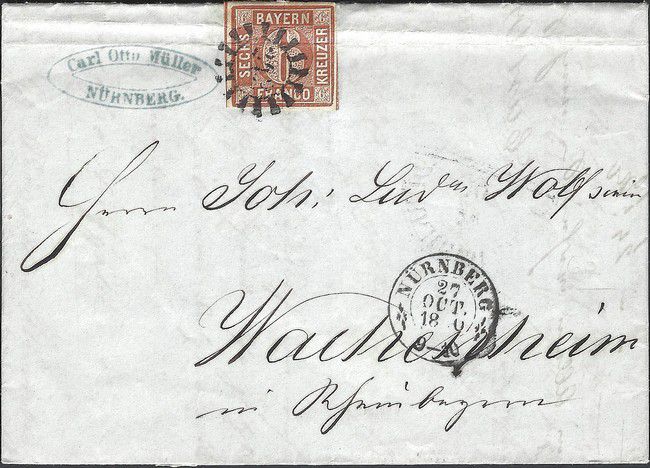 Carl Otto Müller
NÜRNBERG.
BAYERN
SECHS
KREUZER
FRANCO
Herrn Joh: Lud. Wolf
NÜRNBERG
27
OCT.
18 0
9-10
Wachenheim
in Rheinbayern